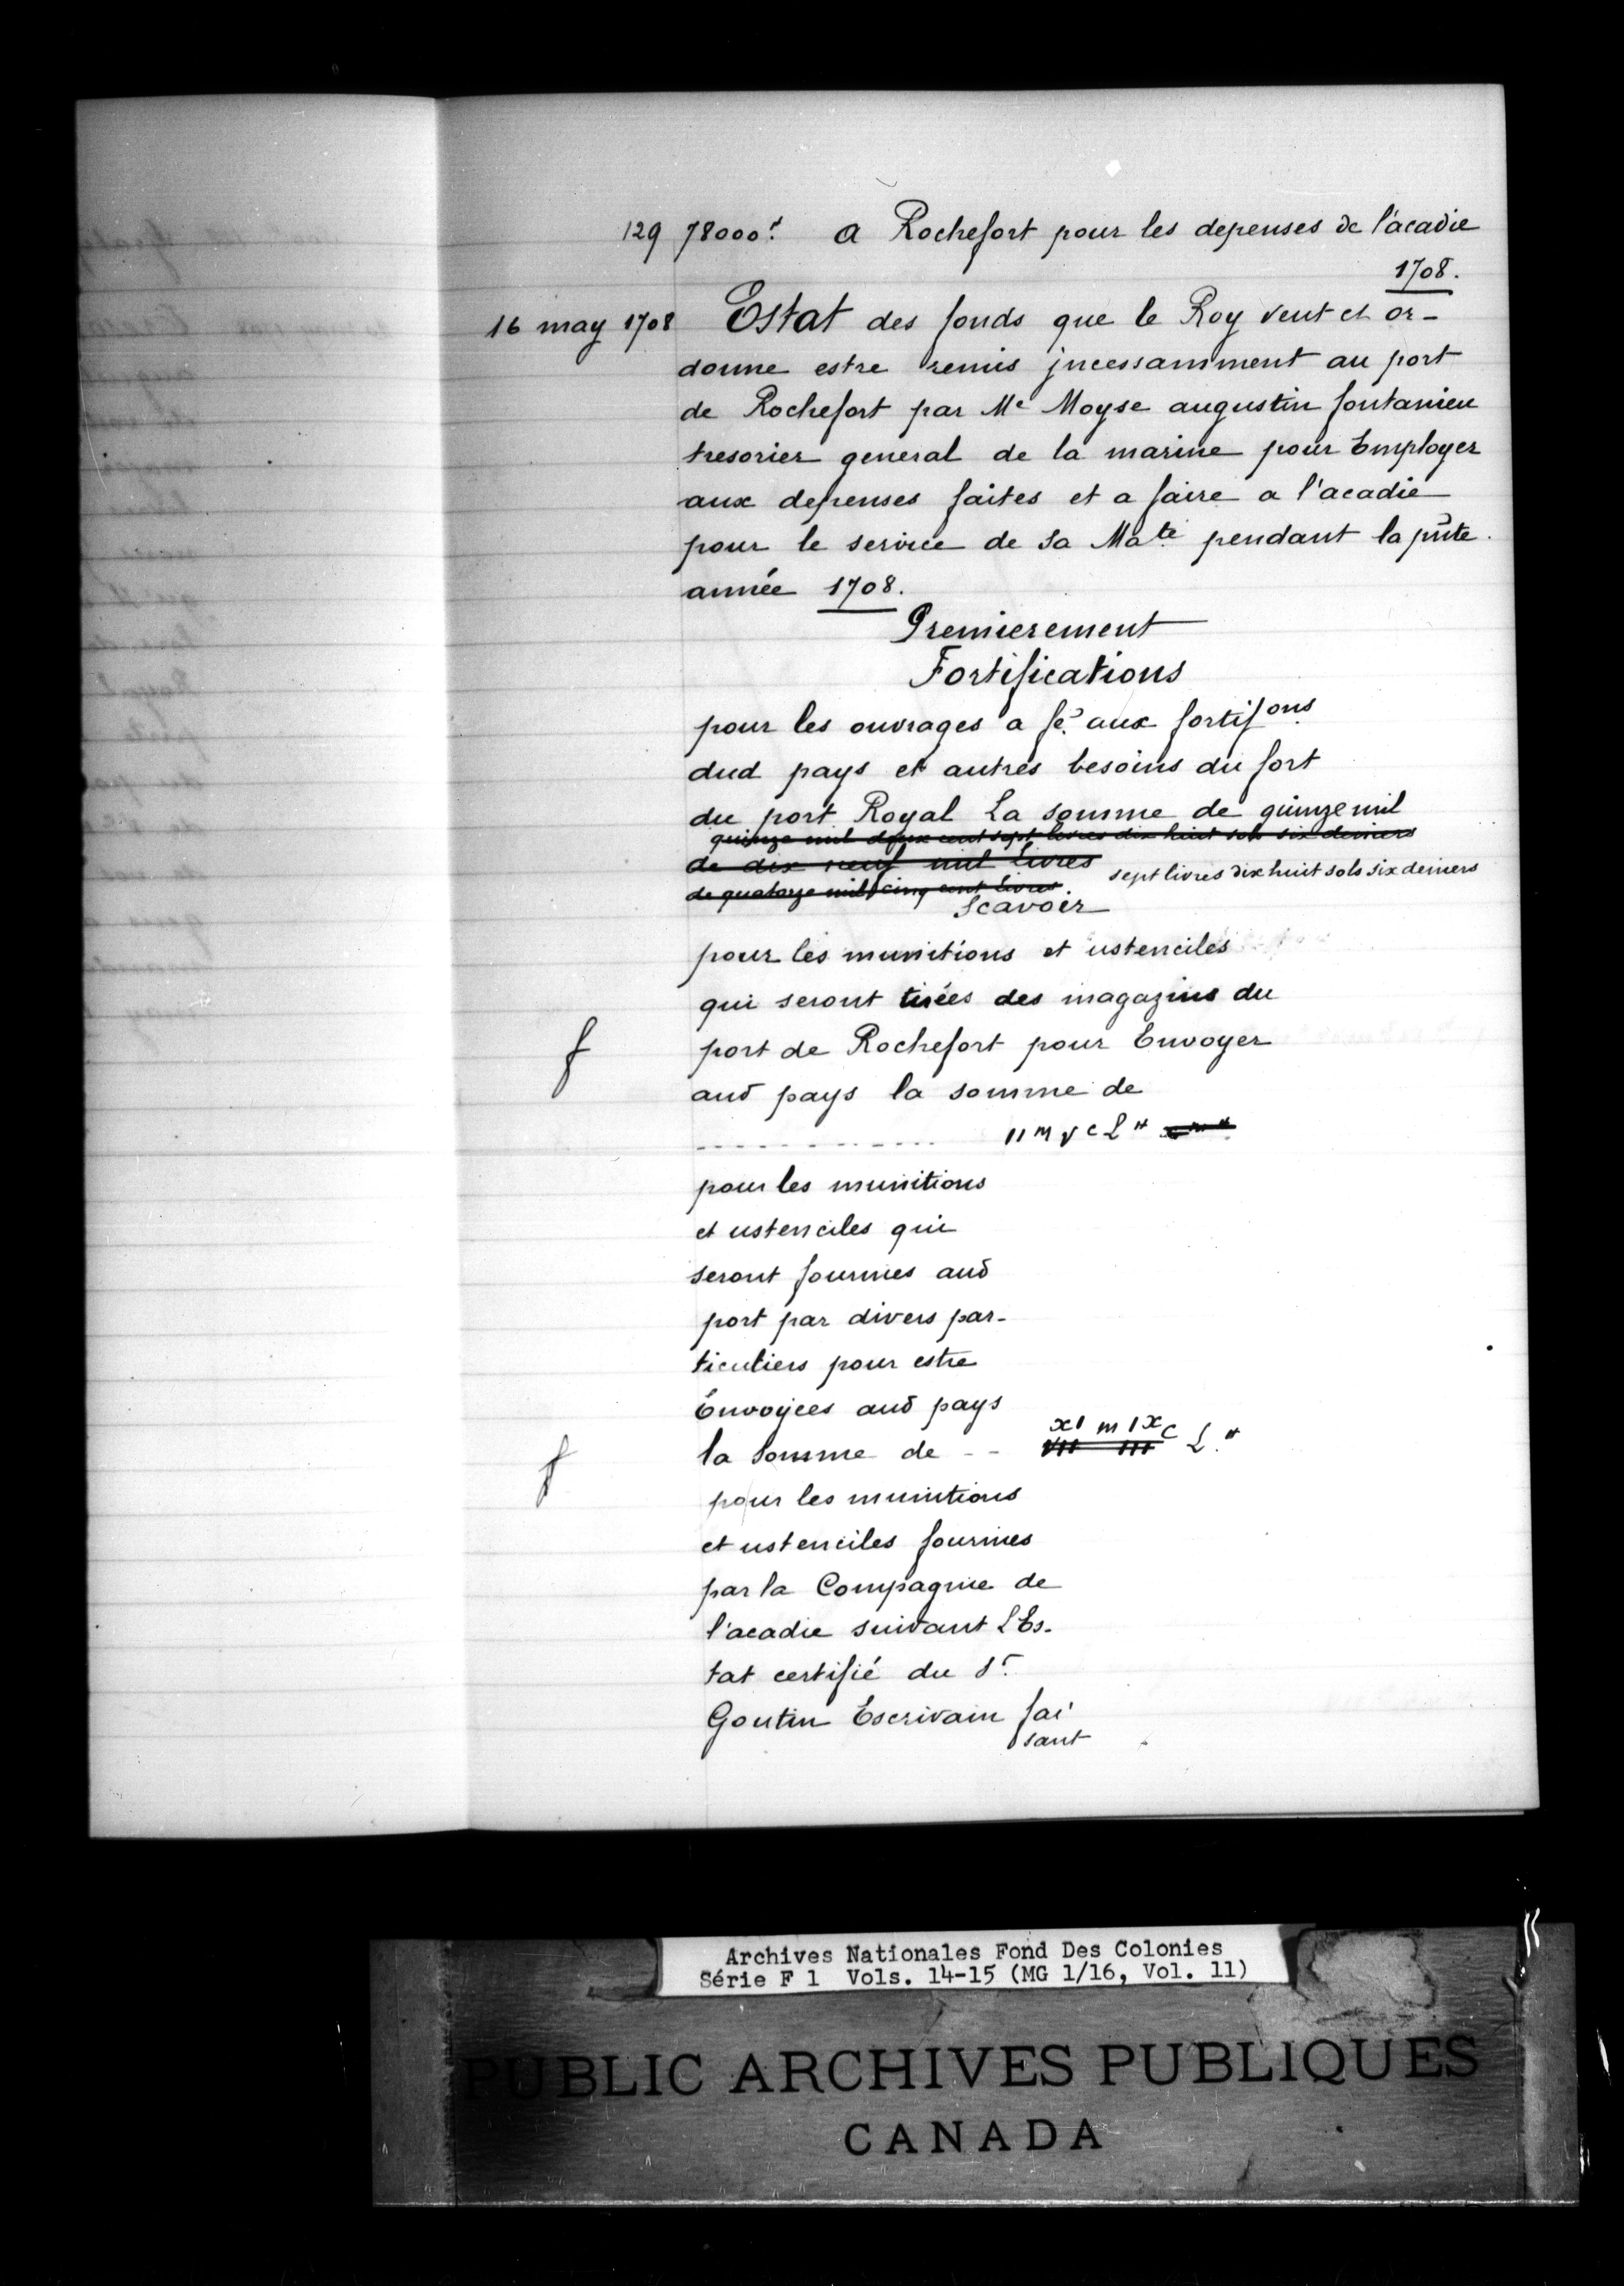 129 78000ᵗ. a Rochefort pour les depenses de l'acadie
1708.
16 may 1708 Estat des fonds que le Roy veut et or-
donne estre remis jncessamment au port
de Rochefort par Mᵉ Moyse augustin fontanieu
tresorier general de la marine pour Employer
aux depenses faites et a faire a l'acadie
pour le service de Sa Maᵗᵉ pendant la pñte
année 1708.
Premierement
Fortifications
pour les ouvrages a fᵉ. aux fortifᵒⁿˢ
dud pays et autres besoins du fort
du port Royal La somme de quinze mil
quinze mil deux cent sept livres dix huit sols six deniers
de dix neuf mil livres
sept livres dix huit sols six deniers
de quatorze mil cinq cent livres.
Scavoir
pour les munitions et ustenciles
qui seront tirées des magazins du
f port de Rochefort pour Envoyer
aud pays la somme de
11 m v c L ᵗᵗ
pour les munitions
et ustenciles qui
seront fournies aud
port par divers par-
ticuliers pour estre
Envoyées aud pays
x1 m 1x c L.ᵗᵗ
f la Somme de -- VII III
pour les munitions
et ustenciles fournies
par la Compagnie de
l'acadie suivant LEs-
tat certifié du Sʳ.
Goutin Escrivain fai
sant
Archives Nationales Fond Des Colonies
Série F 1 Vols. 14-15 (MG 1/16, Vol. 11)
PUBLIC ARCHIVES PUBLIQUES
CANADA